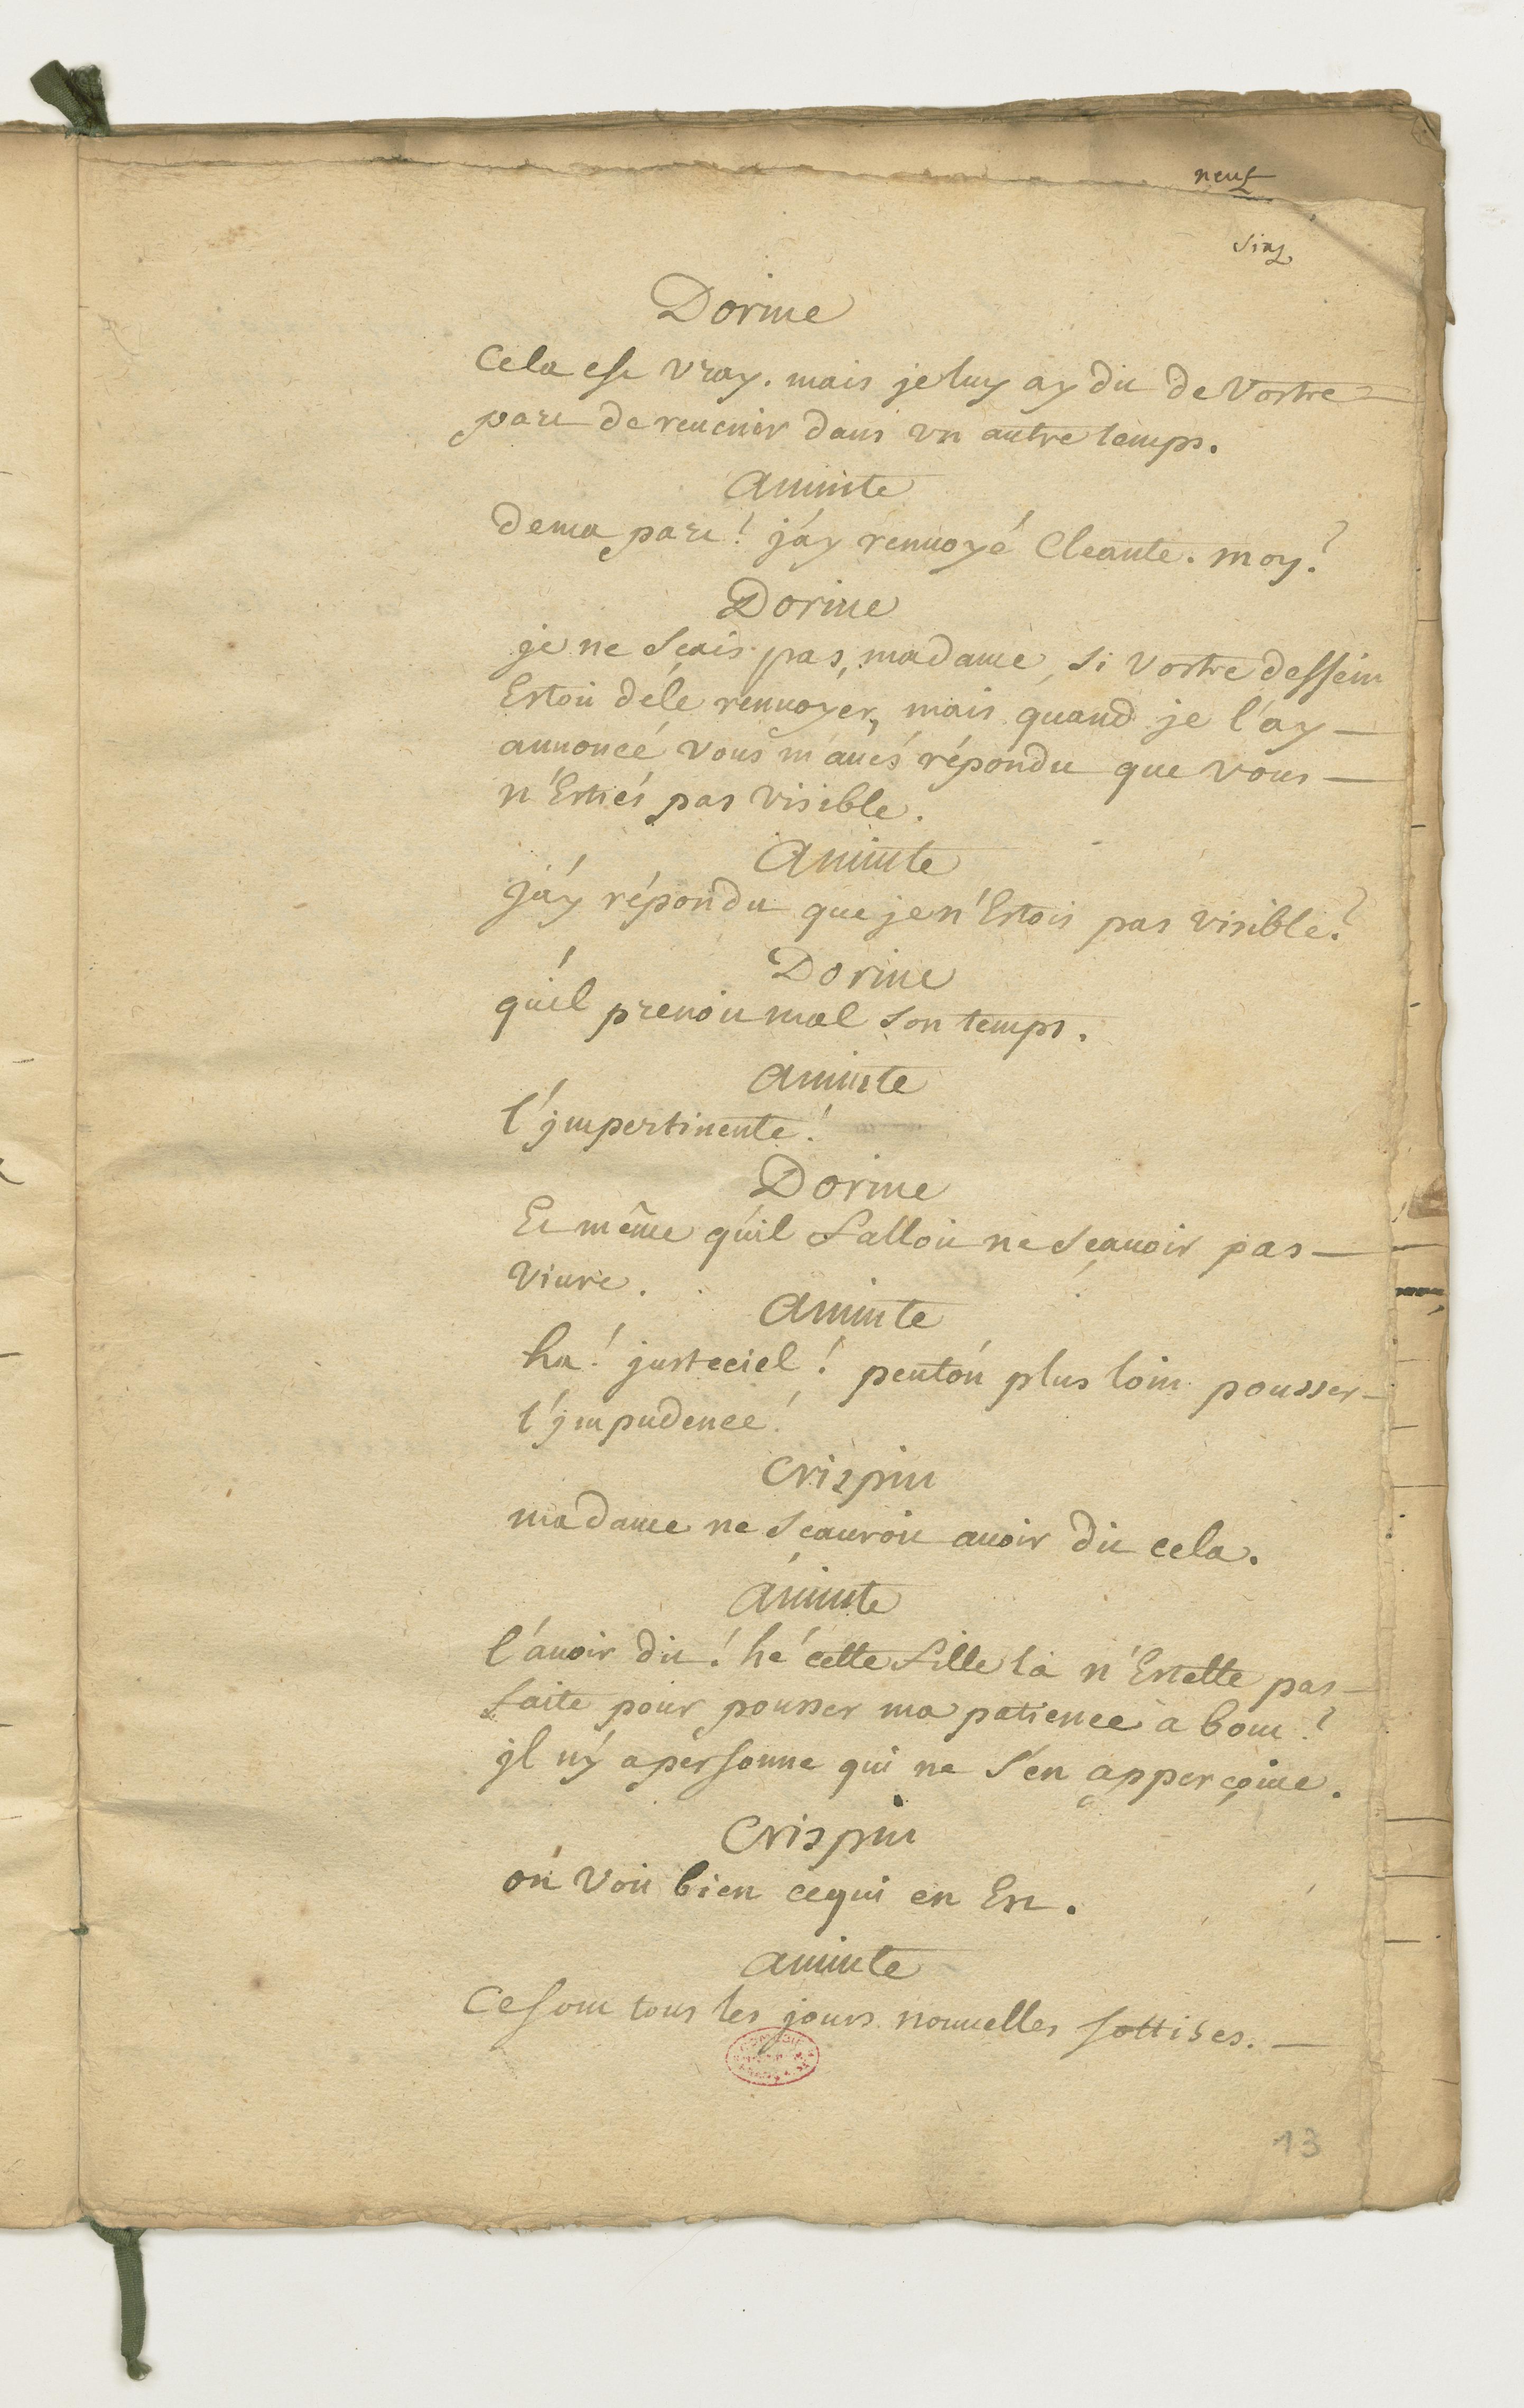 neuf
Sinq
Dorine
Cela est vray. mais je luy ay dit de Vostre
part de reuenir dans vn autre temps.
Aminte
de ma part! j'ay renuoyé Cleante. moy?
Dorine
je ne sçais pas, madame, si vostre dessein
Estoit de le renuoyer, mais quand je l'ay
annoncé vous m'aués répondu que vous
n'Estiés pas visible.
Aminte
j'ay répondu que je n'Estois pas visible?
Dorine
qu'il prenoit mal son temps.
Aminte
l'jmpertinente!
Dorine
Et même qu'il falloit ne sçauoir pas
viure.
Aminte
ha! juste ciel! peut on plus loin pousser
l'jmpudence!
Crispin
madame ne sçauroit auoir dit cela.
Aminte
l'auoir dit! hé cette fille là n'Est elle pas
faite pour pousser ma patience à bout?
jl n'y a personne qui ne s'en apperçoiue.
Crispin
on voit bien ce qui en Est.
Aminte
Ce sont tous les jours nouuelles sottises.
13